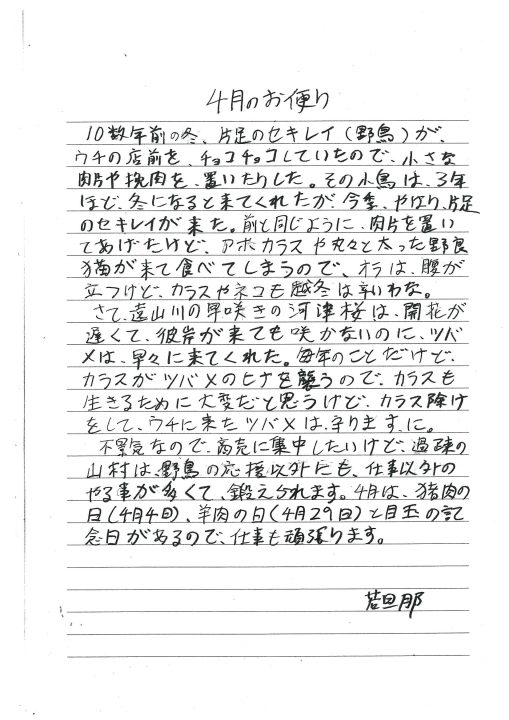 4月のお便り
10数年前の冬、片足のセキレイ(野鳥)が、
ウチの店前を、チョコチョコしていたので、小さな
肉片や挽肉を、置いたりした。その小鳥は、3年
ほど、冬になると来てくれたが、今季、やはり、片足
のセキレイが来た。前と同じように、肉片を置い
てあげたけど、アホカラスや丸々と太った野良
猫が来て食べてしまうので、オラは、腹が
立つけど、カラスやネコも越冬は辛いわな。
さて、遠山川の早咲きの河津桜は、開花が
遅くて、彼岸が来ても咲かないのに、ツバ
メは、早々に来てくれた。毎年のことだけど、
カラスがツバメのヒナを襲うので、カラスも
生きるために大変だと思うけど、カラス除け
をして、ウチに来たツバメは、守りますに。
不景気なので、商売に集中したいけど、過疎の
山村は、野鳥の応援以外にも、仕事以外の
やる事が多くて、鍛えられます。4月は、猪肉の
日(4月4日)、羊肉の日(4月29日)と目玉の記
念日があるので、仕事も頑張ります。
若旦那